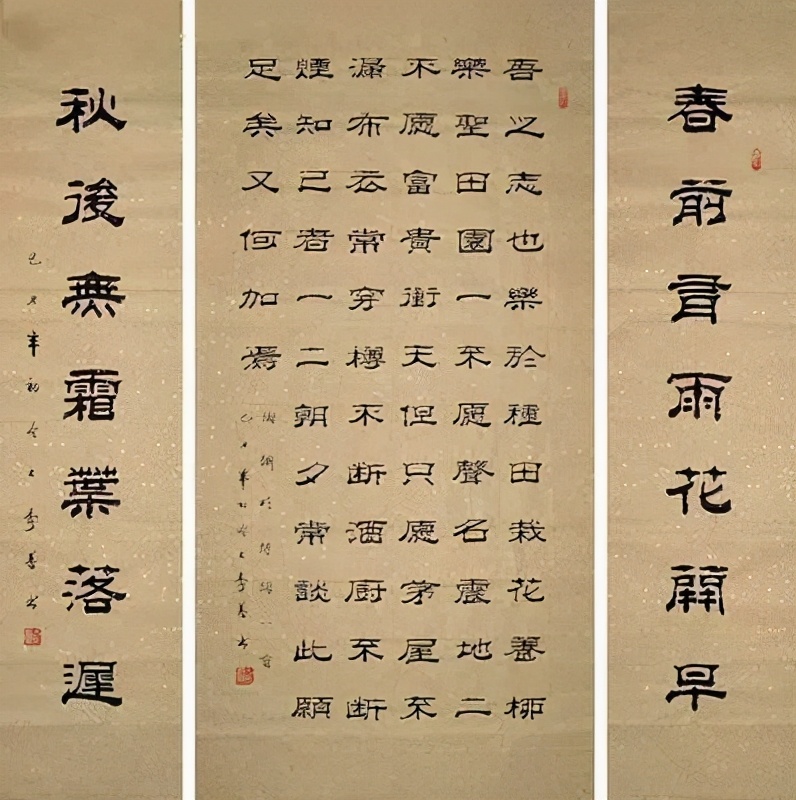 春前有雨花開早
吾之志也樂於種田栽花養柳
樂聖田園一不愿聲名震地二
不愿富貴衝天但只愿茅屋不
漏布衣常穿樽不断酒厨不断
煙知己者一二朝夕常談此願
足矣又何加焉
秋後無霜葉落遲
己丑年初冬